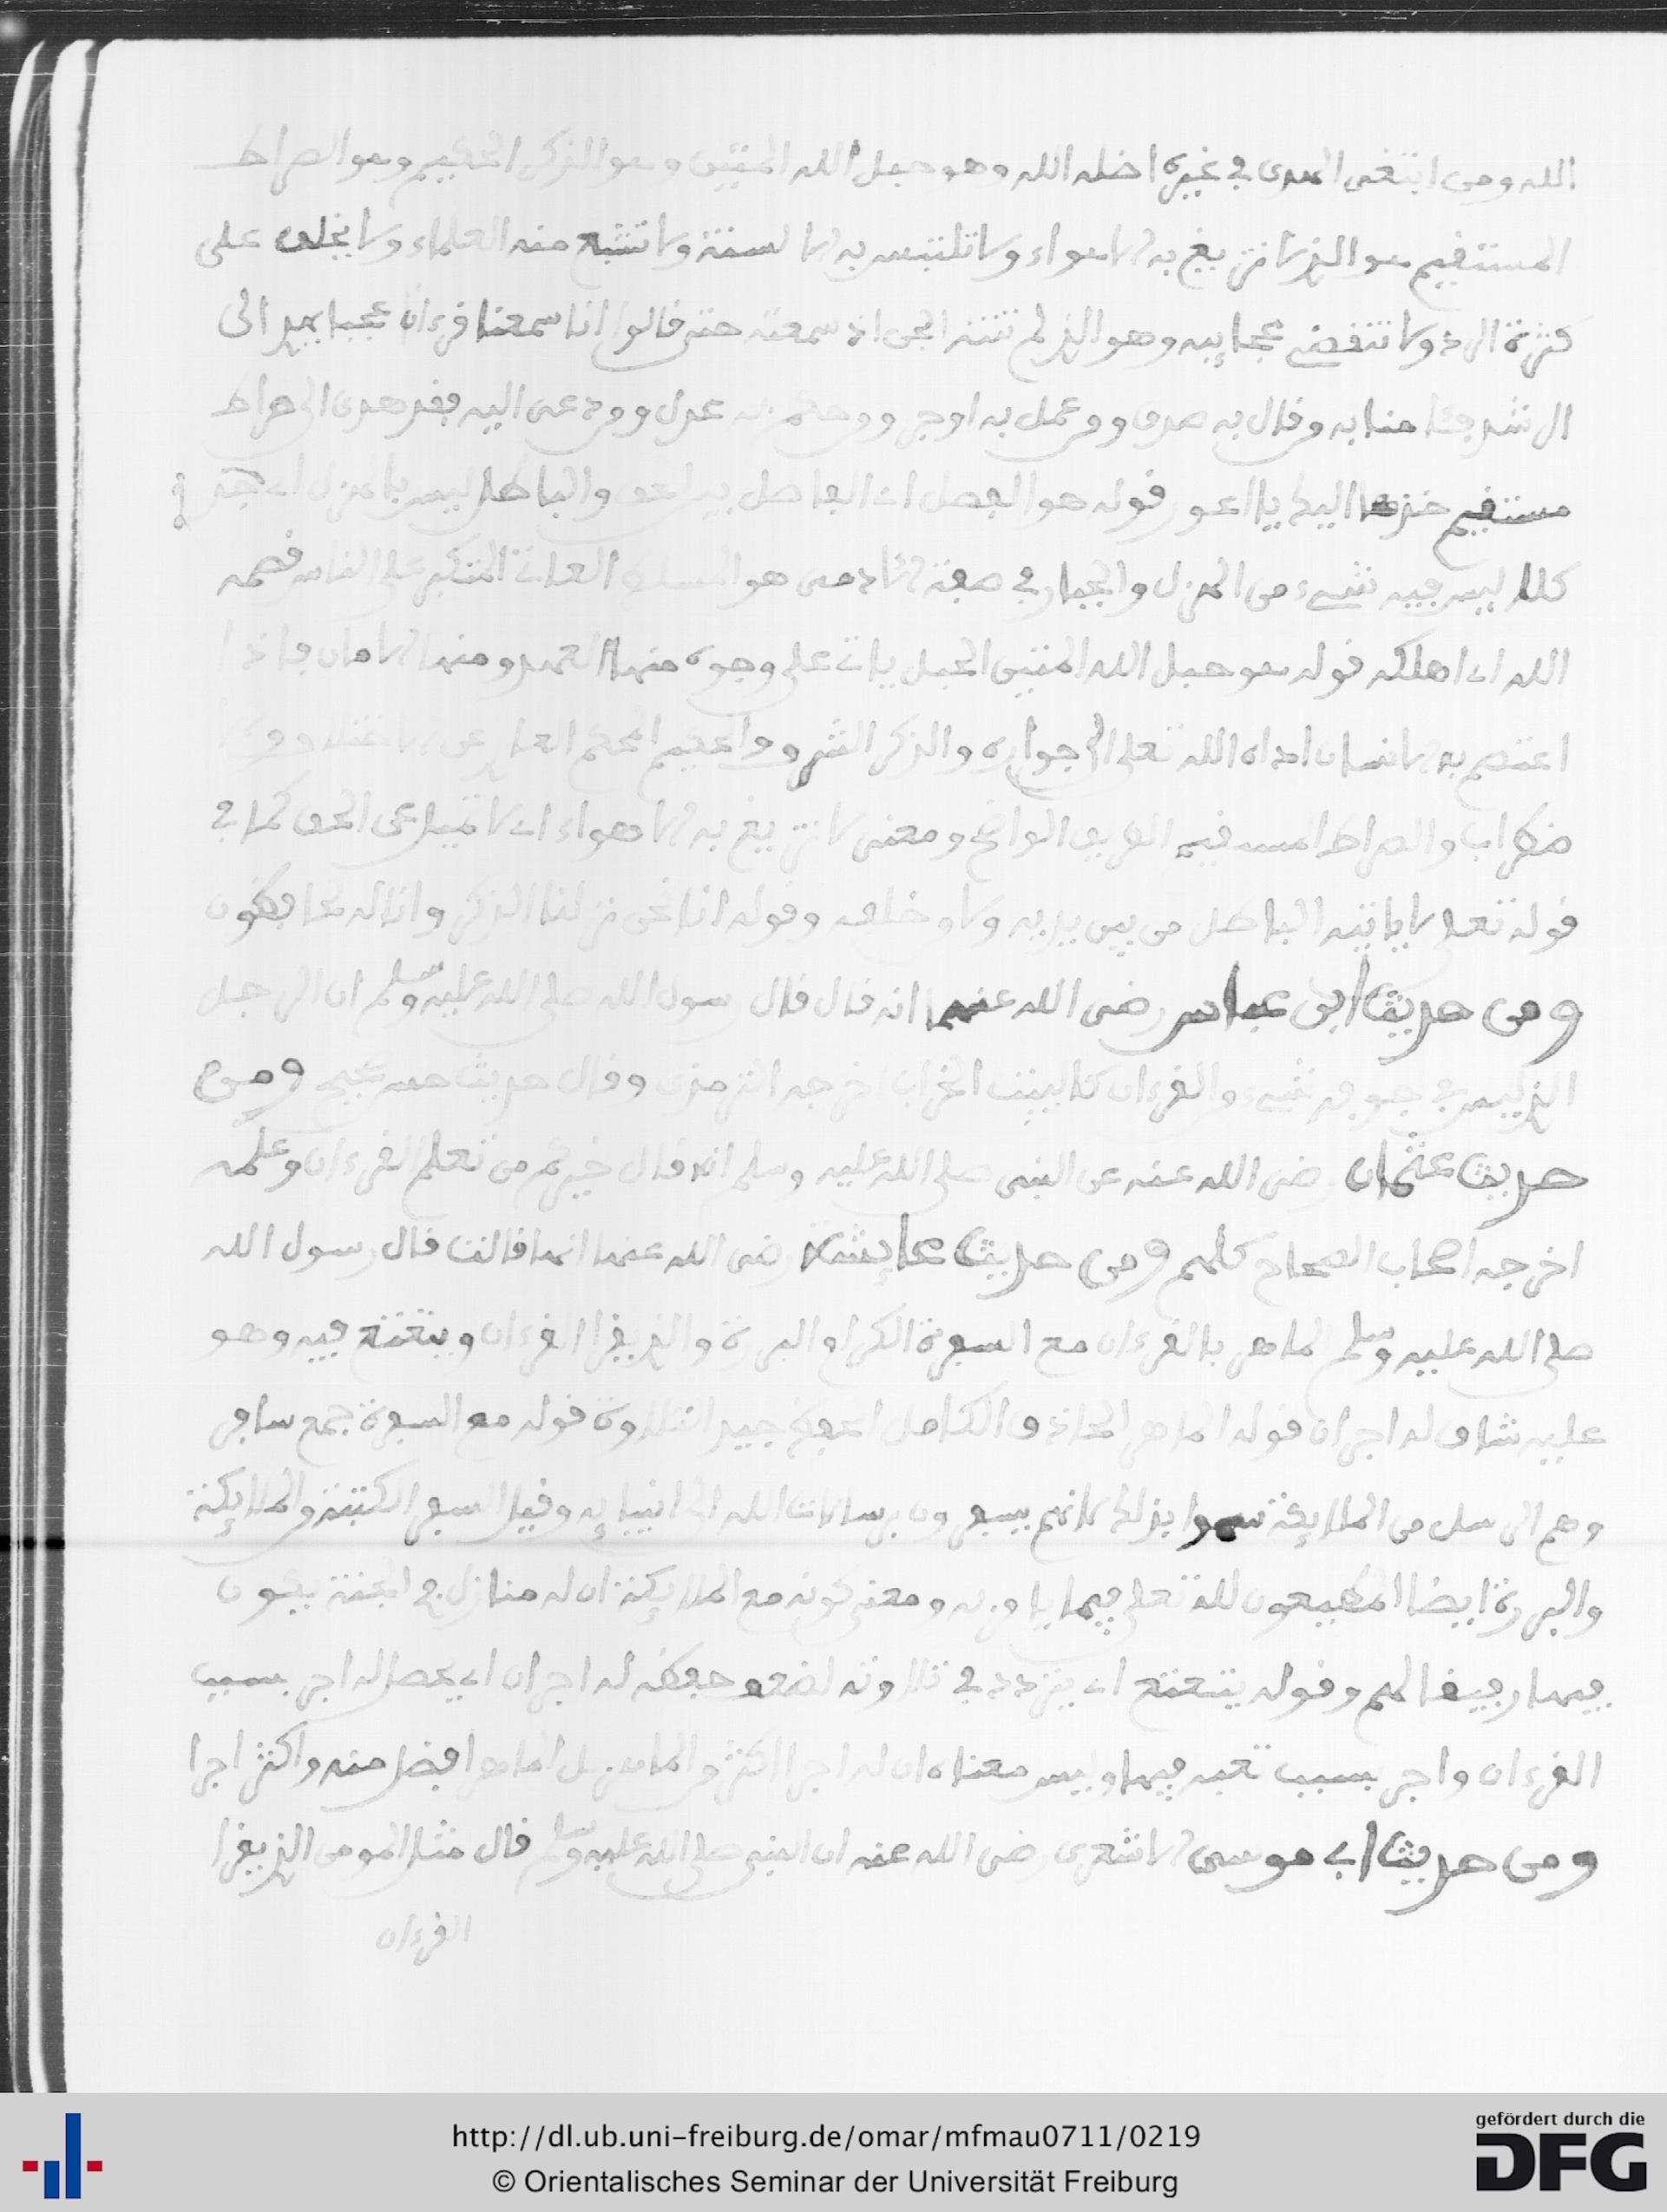 الله ومن ابتغى الهدى في غيره اضله الله وهو حبل الله المتين وهو الذكر الحكيم وهو الصراط
المستقيم هو الذي لا تزيغ به الاهواء ولا تلتبس به الالسنة ولا تشبع منه العلماء ولا يخلق على
كثرة الرد ولا تنقضي عجايبه وهو الذي لم تنته الجن اذ سمعته حتى قالوا انا سمعنا قرءانا عجبا يهدي الى
الرشد فئامنا به من قال به صدق ومن عمل به اوجر ومن حكم به عدل ومن دعى اليه فقد هدي الى صراط
مستقيم خذها اليك يا اعور قوله هو الفصل اي الفاصل بين الحق والباطل ليس بالهزل اي جد
كله ليس فيه شيء من الهزل والجبار في صفة الادمي هو المسلط العاتي المتكبر على الناس قصمه
الله اي اهلكه قوله هو حبل الله المتين الحبل ياتي على وجوه منها العهد ومنها الامان فاذا
اعتصم به الانسان اداه الله تعلى الى جواره والذكر الشرف والحكيم المحكم العاري عن الاختلاف
ضطراب والصراط المستقيم الطريق الواضح ومعنى لا تزيغ به الاهواء اي لا تميل عن الحق كما في
قوله تعلى لا ياتيه الباطل من بين يديه ولا من خلفه وقوله انا نحن نزلنا الذكر وانا له لحافظون
ومن حديث ابن عباس رضي الله عنهما انه قال قال رسول الله صلى الله عليه وسلم ان الرجل
الذي ليس في جوفه شيء من القرءان كالبيت الخراب اخرجه الترمذي وقال حديث حسن صحيح ومن
حديث عثمان رضي الله عنه عن النبي صلى الله عليه وسلم انه قال خيركم من تعلم القرءان وعلمه
اخرجه اصحاب الصحاح كلهم ومن حديث عايشة رضي الله عنها انها قالت قال رسول الله
صلى الله عليه وسلم الماهر بالقرءان مع السفرة الكرام البررة والذي يقرا القرءان ويتعتع فيه وهو
عليه شاق له اجران قوله الماهر الحاذق الكامل الحفظ جيد التلاوة قوله مع السفرة جمع سافر
وهم الرسل من الملايكة سموا بذلك لانهم يسفرون برسالات الله الى انبيايه وقيل السفر الكتبة والملايكة
والبررة ايضا المطيعون لله تعلى فيما يامر به ومعنى كونه مع الملايكة ان له منازل في الجنة يكون
فيها رفيقا لهم وقوله يتعتع اي يتردد في تلاوته لضعف حفظه له اجران اي يحصل له اجر بسبب
القرءان واجر بسبب تعبه فيها وليس معناه ان له اجرا اكثر من الماهر بل الماهر افضل منه واكثر اجرا
ومن حديث ابي موسى الاشعري رضي الله عنه ان النبي صلى الله عليه وسلم قال مثل المومن الذي يقرا
القرءان
http://dl.ub.uni-freiburg.de/omar/mfmau0711/0219
© Orientalisches Seminar der Universität Freiburg
gefördert durch die
DFG